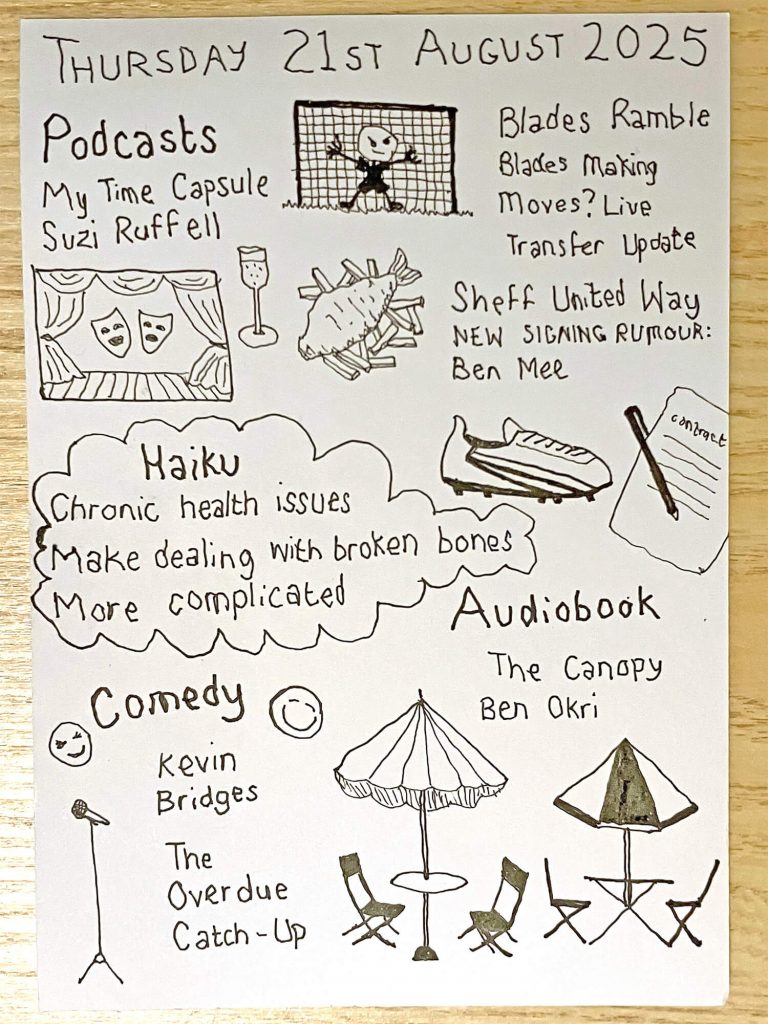 THURSDAY 21ST AUGUST 2025
Podcasts
My Time Capsule
Suzi Ruffell
Blades Ramble
Blades Making
Moves? Live
Transfer Update
Sheff United Way
NEW SIGNING RUMOUR:
Ben Mee
contract
Haiku
Chronic health issues
Make dealing with broken bones
More complicated
Audiobook
The Canopy
Ben Okri
Comedy
Kevin
Bridges
The
Overdue
Catch-Up